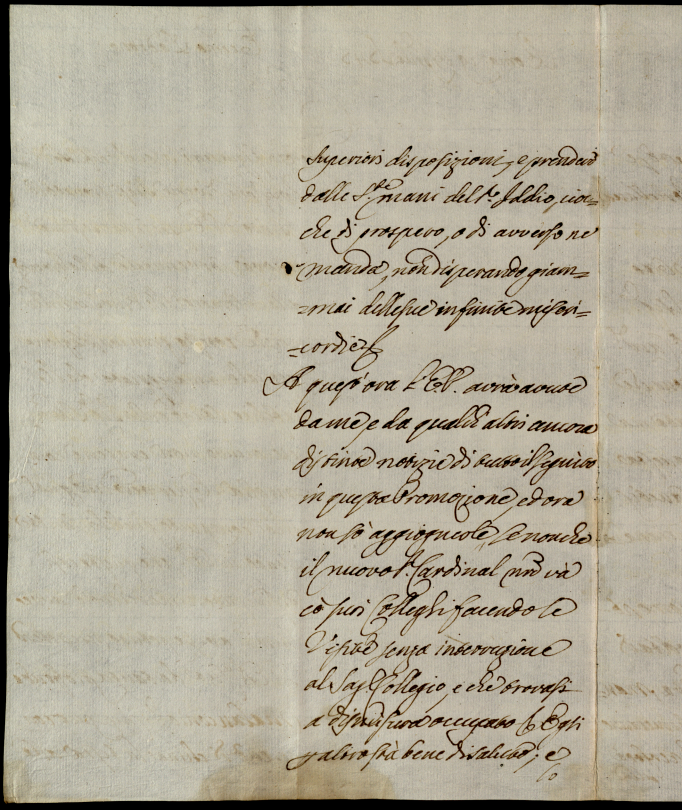 superiori disposizioni, e prenderò
dalle S.te mani del S.r Iddio, ciò-
che di prospero, o di avverso ne
manda, non disperando giam=
=mai delle sue infinite miseri=
=cordie
A quest'ora l'E.V. avrà avute
da me, e da qualch'altri ancora
distinte notizie di tutto il seguito
in questa Promozione, ed ora
non sò aggiognerle, se non che
il nuovo S.r Cardinal nrō và
cò suoi Colleghi facendo le
Visite senza interruzione
al Sag. Collegio, e che trovasi
a dismisura occupato. Egli
p altro stà bene di salute; e